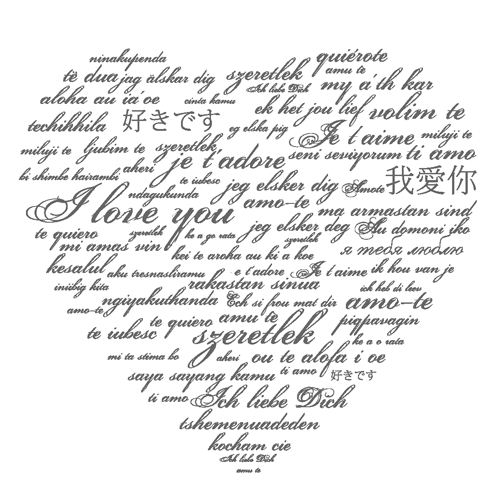 ninakupenda quiérote
të dua jag älskar dig szeretlek amu te
Ich liebe Dich my á'th kar
aloha au iá'oe cinta kamu ek het jou lief volim te
techihhila 好きです eg elska þig Je t'aime miluji te
miluji te ljubim te szeretlek seni seviyorum ti amo
bi shimbe hairambi aheri je t'adore
te iubesc jeg elsker dig Amote 我愛你
I love you ndagukunda amo-te ma armastan sind
te quiero szeretlek ke a go rata jeg elsker deg Au domoni iko
mi amas vin szeretlek я тебя люблю
kei te aroha au ki a koe
kesalul aku tresnasliramu e t'adore Je t'aime ik hou van je
iniibig kita rakastan sinua ich hab di liev
ngiyakuthanda Ech si frou mat dir amo-te
amo-te te quiero amu te piqpavagin
te iubesc szeretlek ke a o rata
mi ta stima bo aheri ou te alofa i oe
saya sayang kamu ti amo 好きです
ti amo Ich liebe Dich
tshemenuadeden
kocham cie
Ich liebe Dich
amu te